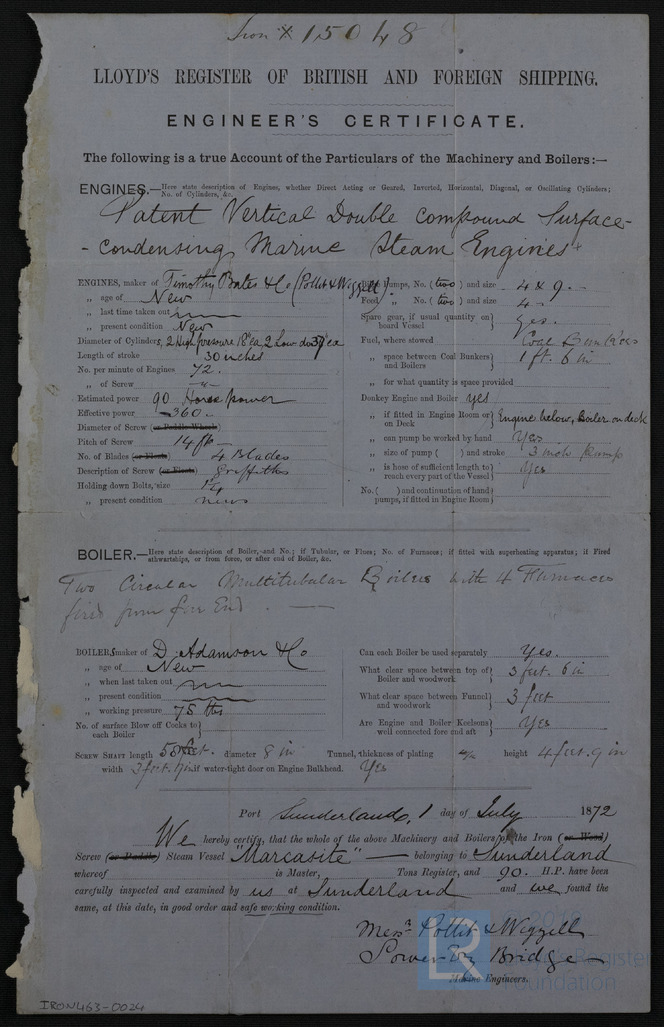 Iron * 15048
LLOYD'S REGISTER OF BRITISH AND FOREIGN SHIPPING.
ENGINEER'S CERTIFICATE.
The following is a true Account of the Particulars of the Machinery and Boilers:—
ENGINES.—Here state description of Engines, whether Direct Acting or Geared, Inverted, Horizontal, Diagonal, or Oscillating Cylinders;
No. of Cylinders, &c.
Patent Vertical Double Compound Surface-
-condensing Marine Steam Engines
ENGINES, maker of Timothy Bates & Co (Pollit & Wigzell)
„ age of New
„ last time taken out
„ present condition New
Diameter of Cylinders, 2 High pressure 18" ea, 2 Low do 37" ea
Length of stroke 30 inches
No. per minute of Engines 72.
„ of Screw —"—
Estimated power 90 Horse power
Effective power 360
Diameter of Screw (or Paddle Wheel)
Pitch of Screw 14 ft
No. of Blades (or Floats) 4 Blades
Description of Screw (or Floats) Griffiths
Holding down Bolts, size
„ present condition new
Pumps, No. (two) and size 4 x 9.
Feed „ No. (two) and size 4
Spare gear, if usual quantity on board Vessel} yes.
Fuel, where stowed Coal Bunkers
„ space between Coal Bunkers and Boilers} 1 ft. 6 in
„ for what quantity is space provided
Donkey Engine and Boiler yes
„ if fitted in Engine Room or on Deck} Engine below, Boiler on deck
„ can pump be worked by hand Yes
„ size of pump ( ) and stroke 3 inch pump
„ is hose of sufficient length to reach every part of the Vessel} Yes
No. ( ) and continuation of hand pumps, if fitted in Engine Room}
BOILER.—Here state description of Boiler, and No.; if Tubular, or Flues; No. of Furnaces; if fitted with superheating apparatus; if Fired
athwartships, or from force, or after end of Boiler, &c.
Two Circular Multitubular Boilers with 4 Furnaces
fired from for End.
BOILERS, maker of D. Adamson & Co
„ age of New
„ when last taken out
„ present condition
„ working pressure 75 lbs
No. of surface Blow off Cocks to each Boiler}
Can each Boiler be used separately Yes.
What clear space between top of Boiler and woodwork} 3 feet. 6 in
What clear space between Funnel and woodwork} 3 feet
Are Engine and Boiler Keelsons well connected fore and aft} Yes
SCREW SHAFT length feet. diameter 8 in Tunnel, thickness of plating height 4 feet. 9 in
width 3 feet. if water-tight door on Engine Bulkhead. Yes
Port Sunderland, 1 day of July 1872
We hereby certify, that the whole of the above Machinery and Boilers of the Iron (or Wood)
Screw (or Paddle) Steam Vessel "Marcasite" — belonging to Sunderland
whereof is Master, Tons Register, and 90. H.P. have been
carefully inspected and examined by us at Sunderland and we found the
same, at this date, in good order and safe working condition.
Messrs Pollit & Wigzell
Sowerby Bridge
Marine Engineers.
LR
Lloyd's Register
Foundation
IRON463-0024